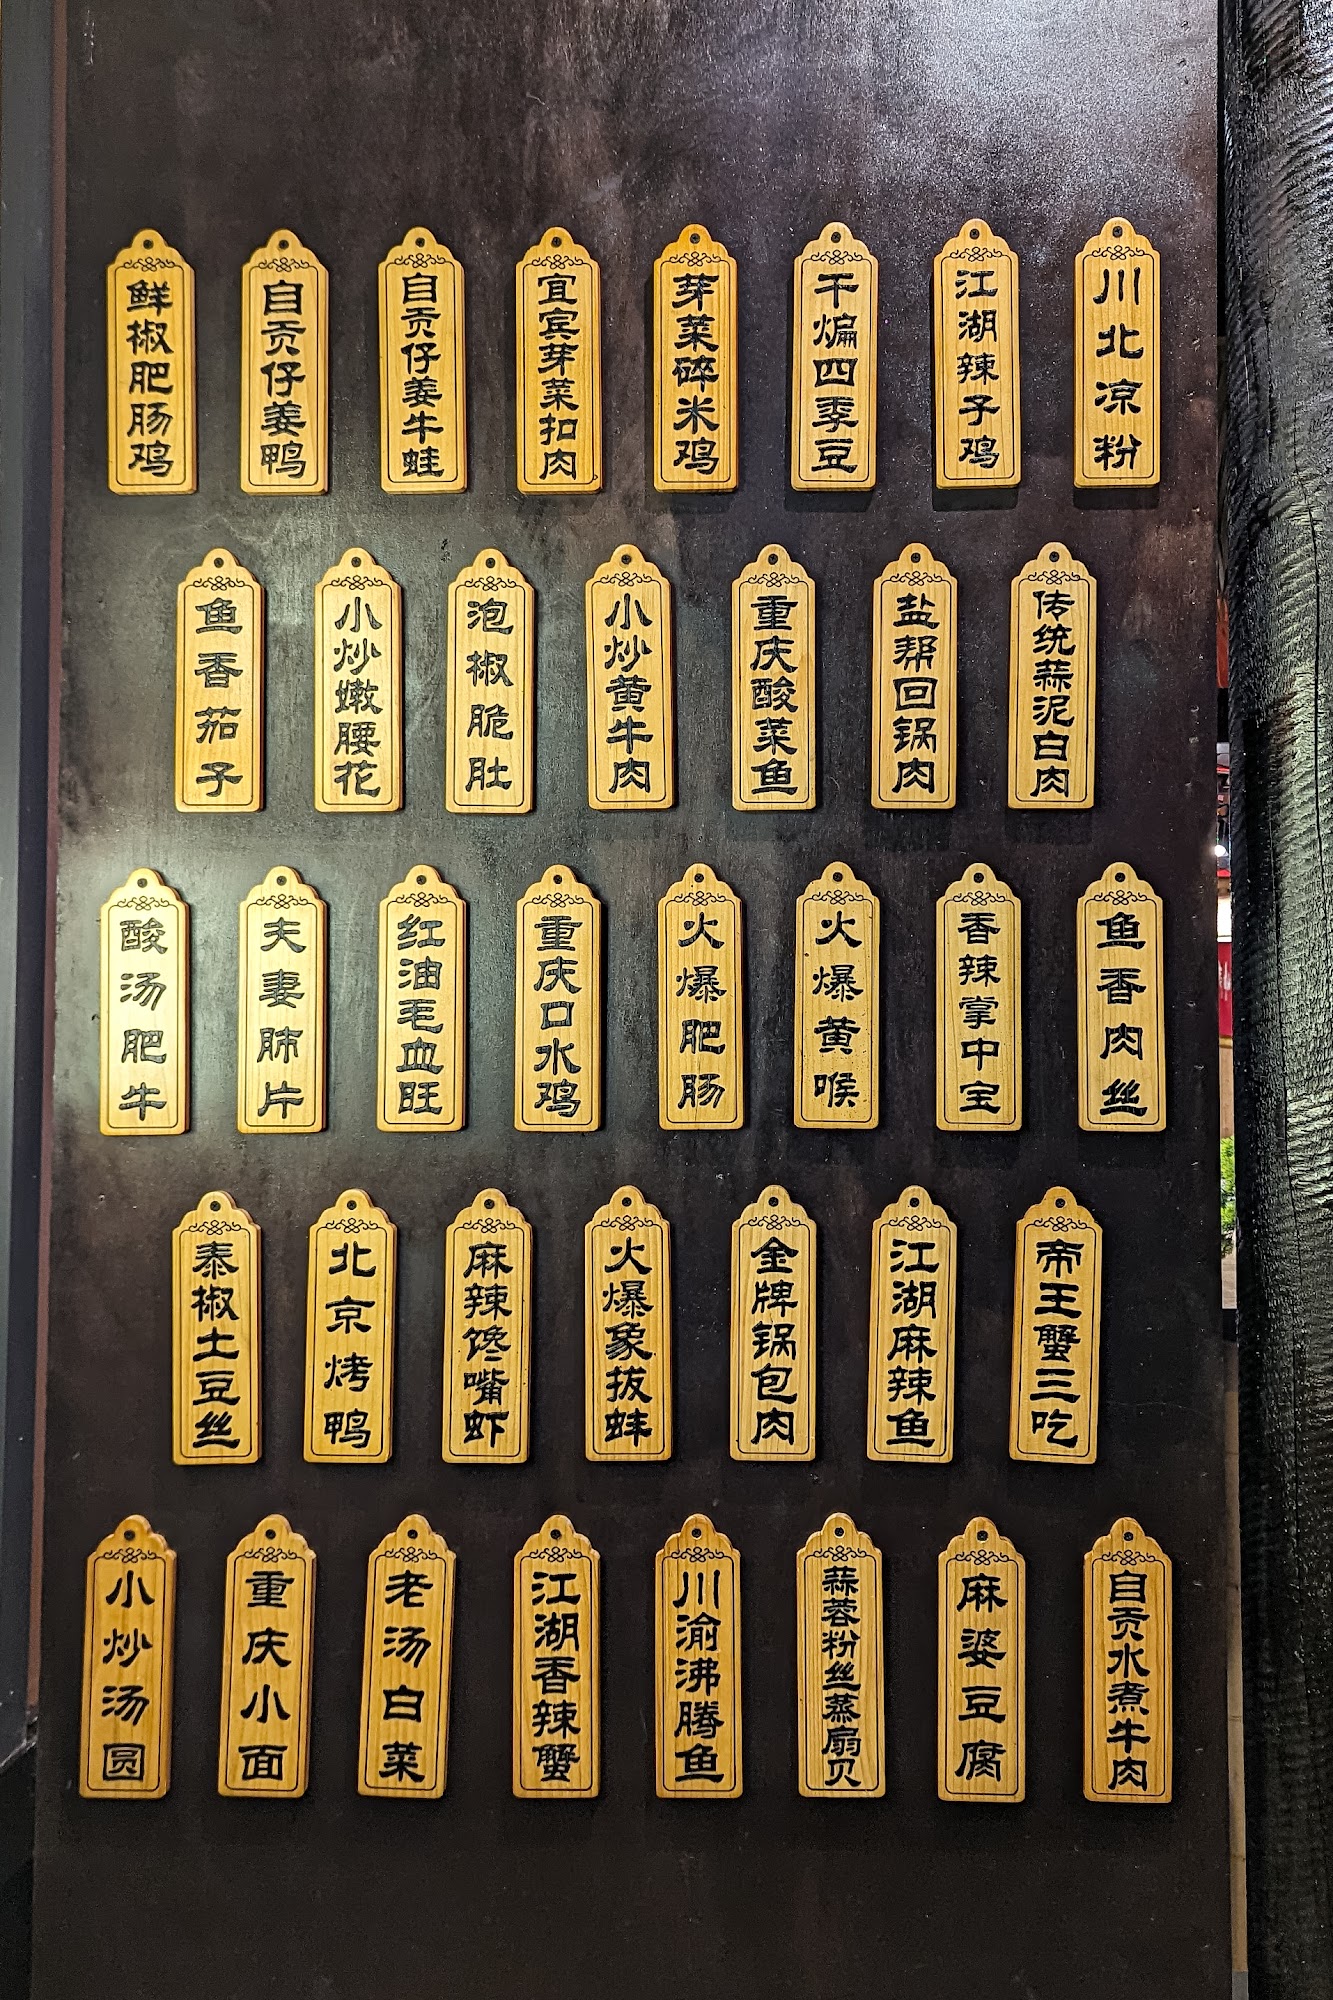 鲜椒肥肠鸡
自贡仔姜鸭
自贡仔姜牛蛙
宜宾芽菜扣肉
芽菜碎米鸡
干煸四季豆
江湖辣子鸡
川北凉粉
鱼香茄子
小炒嫩腰花
泡椒脆肚
小炒黄牛肉
重庆酸菜鱼
盐帮回锅肉
传统蒜泥白肉
酸汤肥牛
夫妻肺片
红油毛血旺
重庆口水鸡
火爆肥肠
火爆黄喉
香辣掌中宝
鱼香肉丝
泰椒土豆丝
北京烤鸭
麻辣馋嘴虾
火爆象拔蚌
金牌锅包肉
江湖麻辣鱼
帝王蟹三吃
小炒汤圆
重庆小面
老汤白菜
江湖香辣蟹
川渝沸腾鱼
蒜蓉粉丝蒸扇贝
麻婆豆腐
自贡水煮牛肉